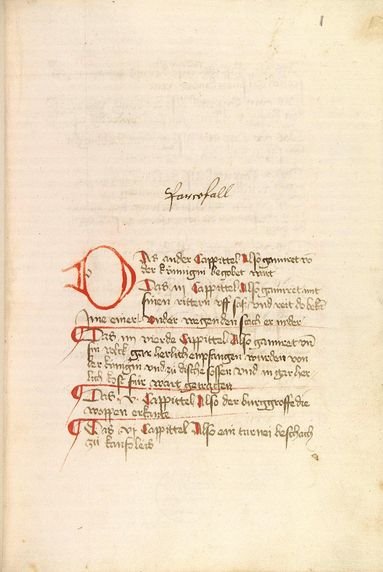 1
parcefall
Das ander Cappittel Also gamiret vō
der kônnigin begobet wart
Das iii Cappittel Also gamiret mit
sinen rittern vff
einer ander
Das iiii vierde Cappittel Also gamiret vñ
sin volck gar herlich empfangen wurden von
der kûnigin vnd zů dische sossen vnd in gar her
lich kost fúr wart getragen
Das v. Cappittel Also der burggroffe die
woppen erkante
Das vi Cappittel Also ein turnei beschach
zů kanfoleis